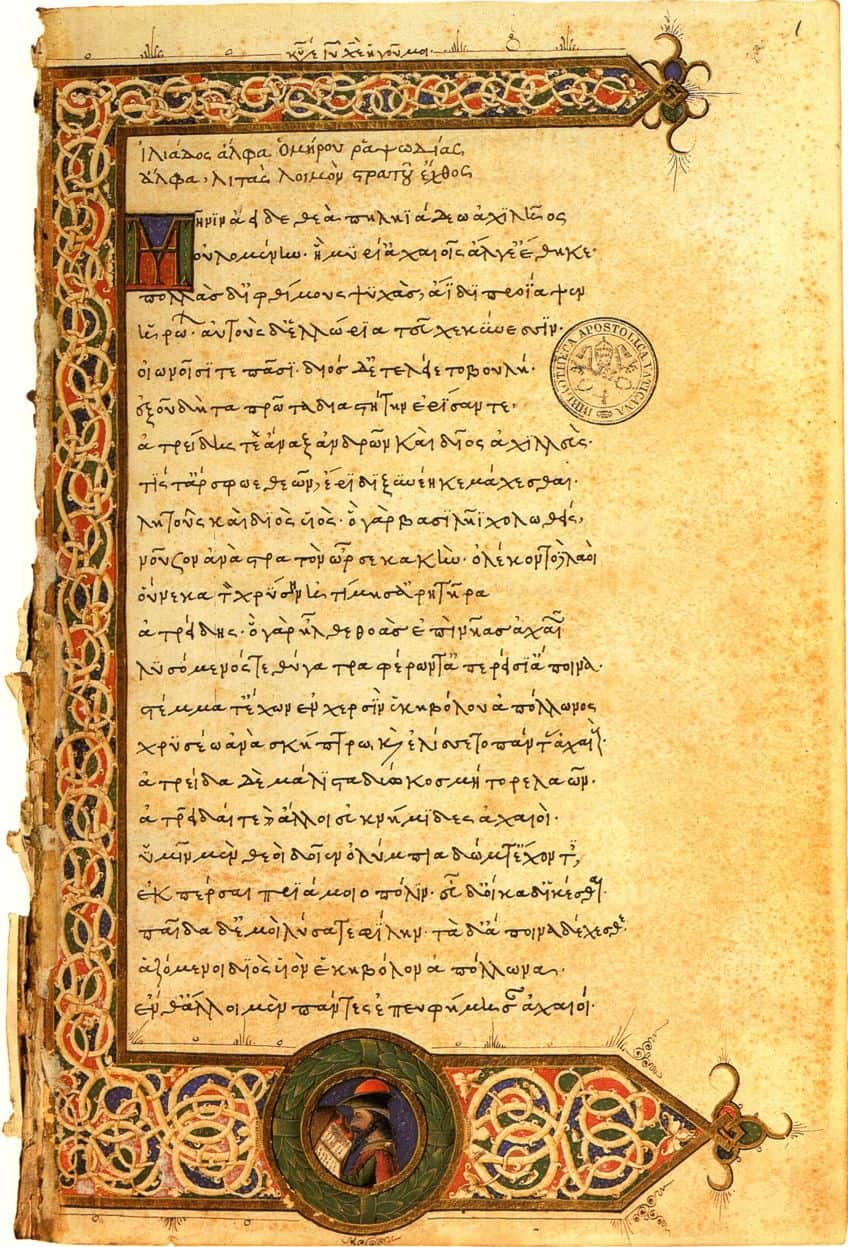 κύε ἰῦ χὲ ἡγοῦ μοι·
1
ἰλιάδος ἄλφα ὁμήρου ῥαψωδίας
ἄλφα, λιτὰς λοιμὸν στρατοῦ ἔχθος
Μῆνιν ἄειδε θεὰ πηληϊάδεω ἀχιλῆος
οὐλομένην· ἣ μυρί' ἀχαιοῖς ἄλγε' ἔθηκε·
πολλὰς δ' ἰφθίμους ψυχὰς ἄϊδι προΐαψεν
ἡρώων· αὐτοὺς δὲ ἑλλώρια τεῦχε κύνεσσιν·
οἰωνοῖσί τε πᾶσι· διὸς δ' ἐτελείετο βουλή·
ἐξ οὗ δὴ τὰ πρῶτα διαστήτην ἐρίσαντε·
ἀτρείδης τε ἄναξ ἀνδρῶν καὶ δῖος ἀχιλλεύς·
τίς τ' ἄρ σφωε θεῶν, ἔριδι ξυνέηκε μάχεσθαι·
λητοῦς καὶ διὸς υἱός· ὁ γὰρ βασιλῆϊ χολωθείς,
νοῦσον ἀνὰ στρατὸν ὦρσε κακήν· ὀλέκοντο δὲ λαοὶ
οὕνεκα τὸν χρύσην ἠτίμησ' ἀρητῆρα
ἀτρείδης· ὁ γὰρ ἦλθε θοὰς ἐπὶ νῆας ἀχαιῶν
λυσόμενός τε θύγατρα φέρων τ' ἀπερείσι' ἄποινα·
στέμμα τ' ἔχων ἐν χερσὶν ἑκηβόλου ἀπόλλωνος
χρυσέω ἀνὰ σκήπτρω, καὶ ἐλίσσετο πάντας ἀχαιούς·
ἀτρείδα δὲ μάλιστα δύω κοσμήτορε λαῶν·
ἀτρεῖδαί τε καὶ ἄλλοι ἐϋκνήμιδες ἀχαιοί·
ὑμῖν μὲν θεοὶ δοῖεν ὀλύμπια δώματ' ἔχοντες,
ἐκπέρσαι πριάμοιο πόλιν· εὖ δ' οἴκαδ' ἱκέσθαι·
παῖδα δέ μοι λύσατε φίλην· τὰ δ' ἄποινα δέχεσθε
ἁζόμενοι διὸς υἱὸν ἑκηβόλον ἀπόλλωνα,
ἔνθ' ἄλλοι μὲν πάντες ἐπευφήμησαν ἀχαιοί·
BIBLIOTHECA APOSTOLICA VATICANA